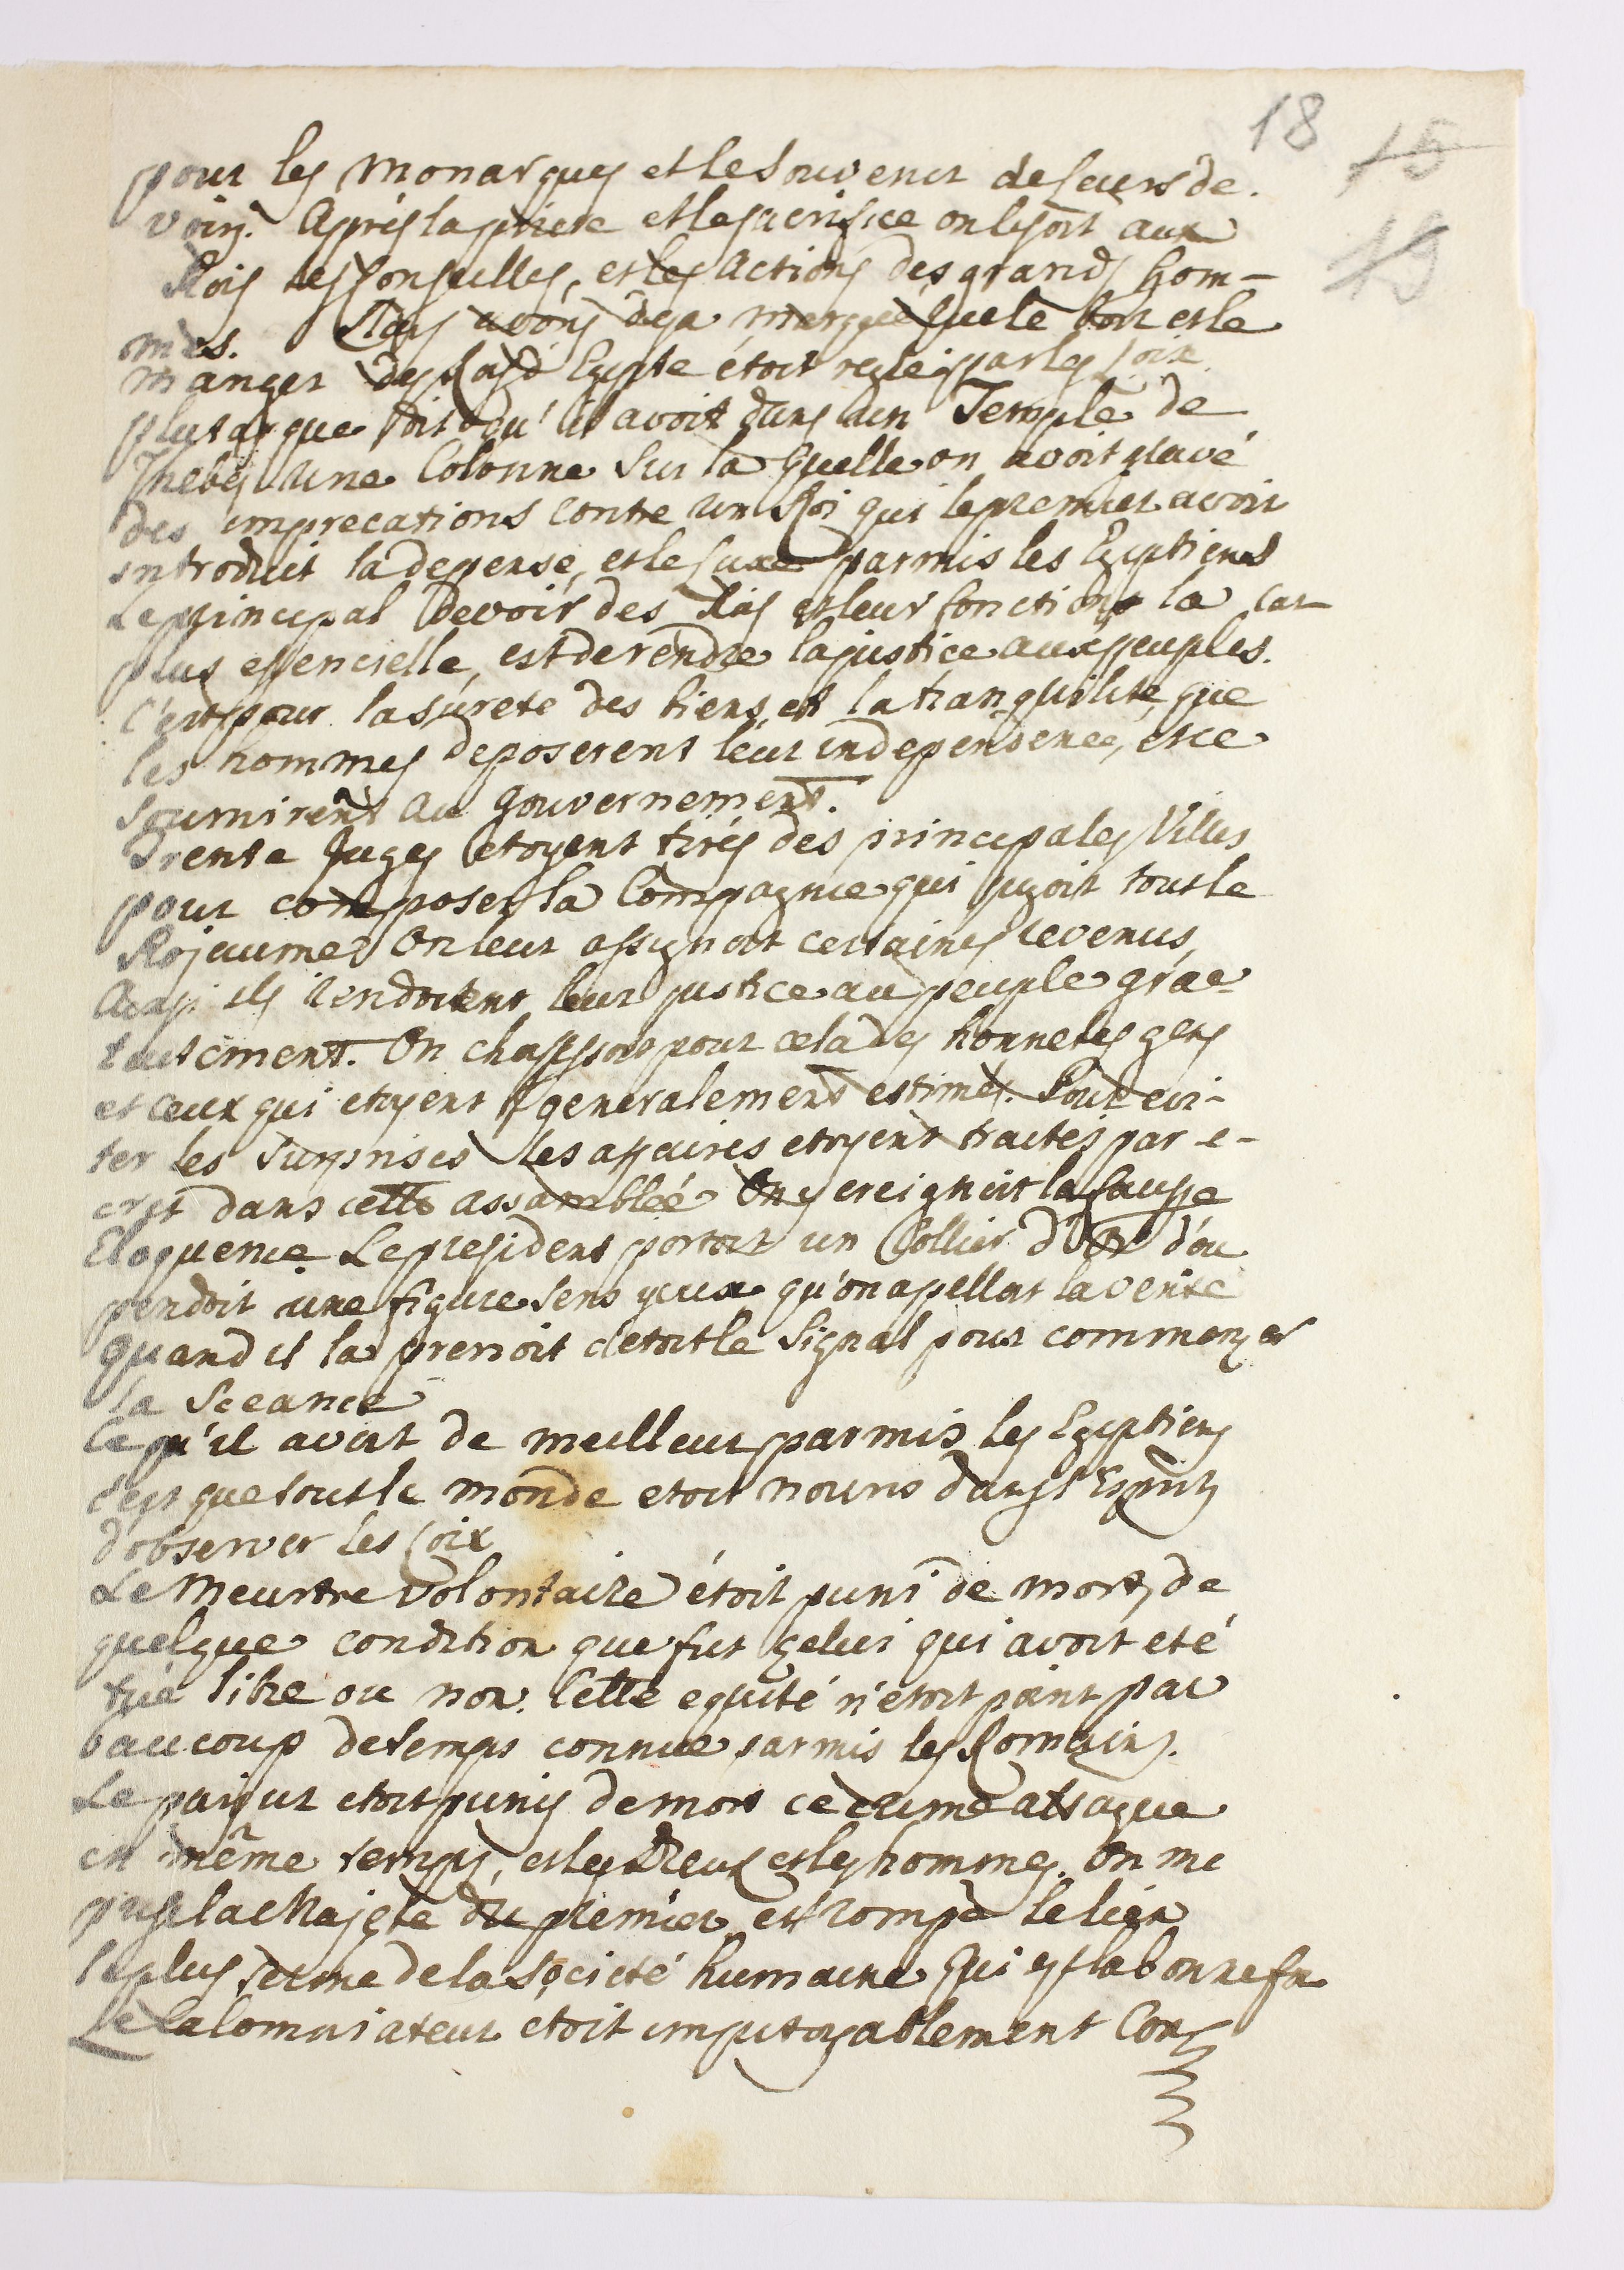 18 15
19
pour les Monarques et le Souvenir de leurs de.
voirs. Après la priere et le sacrifice on lisoit aux
Rois les Conseilles, et les Actions des grands hom-
mes. Nous avons deja marqué que le boir et le
manger des Rois d'Egipte étoit reglé par les loix
plutarque dit qu'il avoit dans un Temple de
Thebes une Colonne Sur la quelle on avoit gravé
des imprecations contre un Roi qui le premier avoit
introduit la depense, et le Luxe parmis les Egiptiens
Le principal Devoir des Rois et leur fonction la
plus essencielle, est de rendre la justice aux peuples. car
C'est pour la sureté des biens et la tranquilité, que
les hommes deposerent leur independence, et ce
soumirent au Gouvernement.
Trente Juges etoyent tirés des principales Villes
pour composer la Compagnie qui jugoit tout le
Rojaume On leur assignoit certaines revenus,
Ainsi ils rendoient leur justice au peuple gra-
tuitement. On choissoit pour cela des honnetes gens
et ceux qui etoyent generalement estimés. Pour evi-
ter les Surprises les affaires etoyent traités par e-
crit dans cette assamblée On y creignoit la fausse
Eloquence Le president portoit un Collier d'Or d'ou
pendoit une figure sens yeux qu'on apelloit la verite
quand il la prenoit c'etoit le Signal pour commencer
la Sceance
Ce qu'il avoit de meilleur parmis les Egiptiens
c'est que tout le monde etoit nouris dans l'Esprit
d'observer les loix
Le Meurtre volontaire étoit puni de mort, de
quelque condition que fut celui qui avoit eté
tué libre ou non. Cette equité n'etoit point par
baucoup de temps connue parmis les Romains.
Le parjur etoit punis de mort ce crime attaque
en même temps, et les Dieux et les hommes. On me
prise la Majeste du premier et rompe le lien
le plus ferme de la Société humaine qui est la bonne foi
Le Calomniateur etoit impitoyablement Con